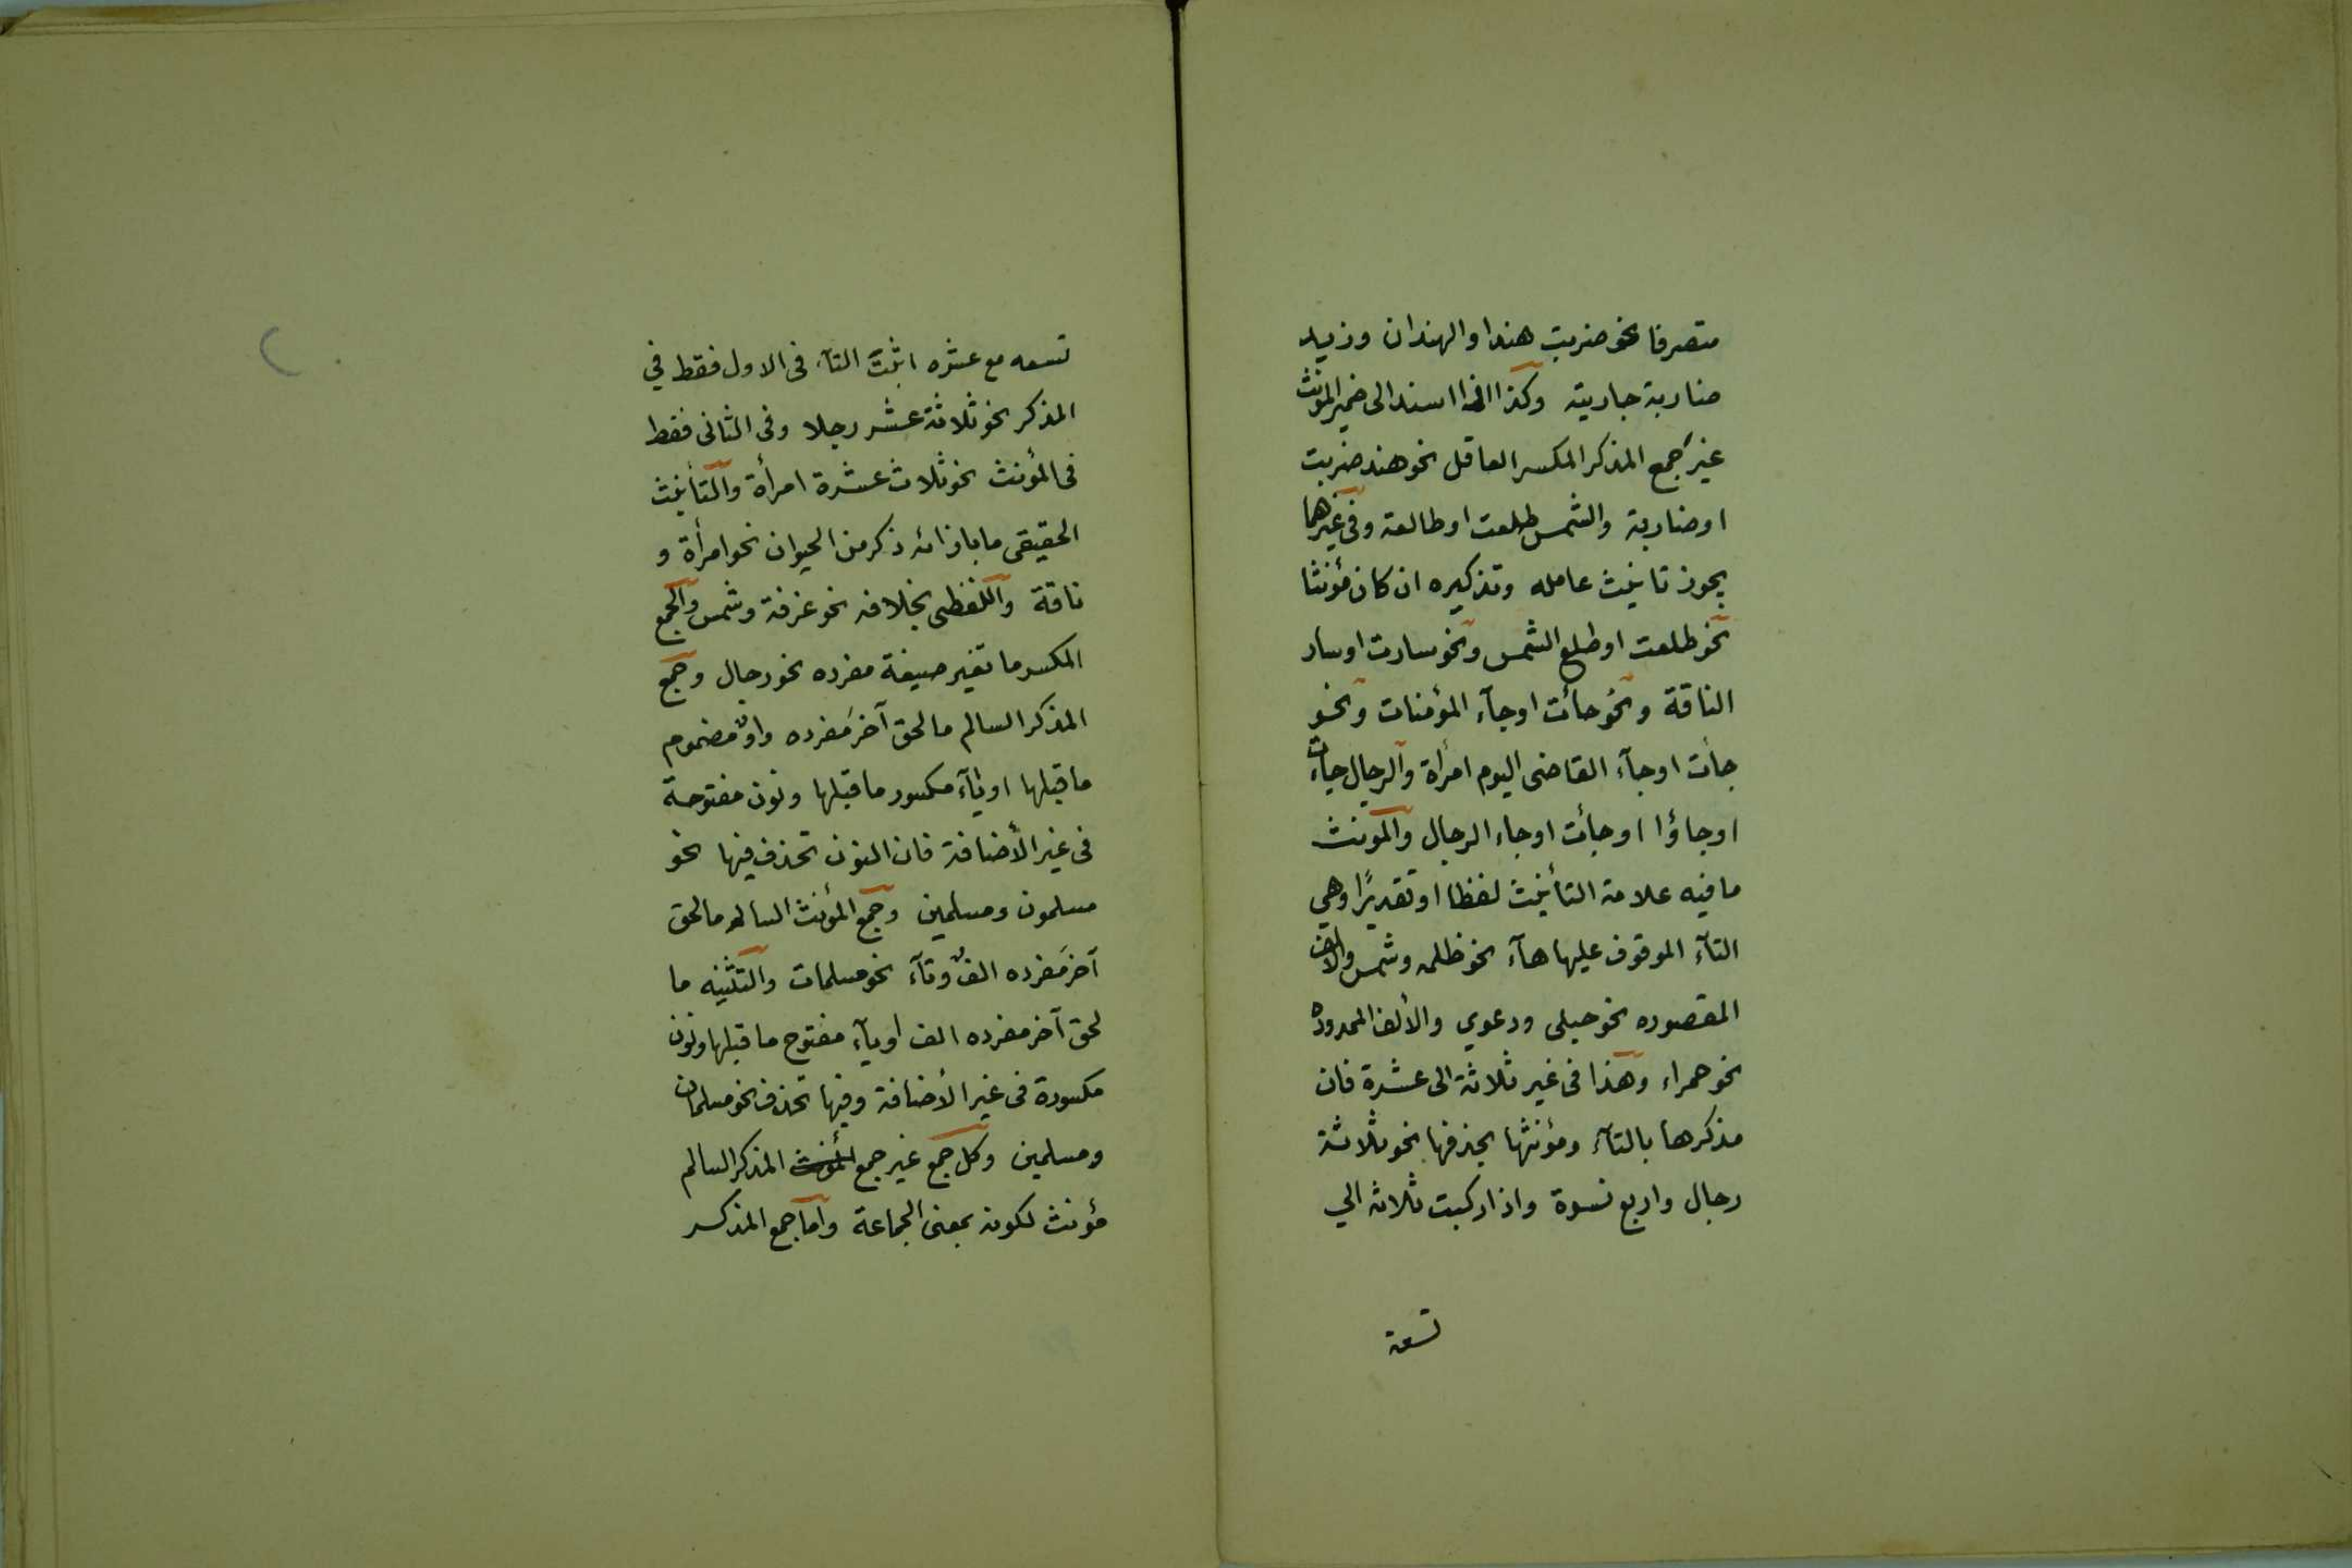 متصرفا نحو ضربت هند او الهندان وزيد
ضاربة جاريته وكذا اذا اسند الى ضمير المؤنث
غير جمع المذكر المكسر العاقل نحو هند ضربت
او ضاربة والشمس طلعت او طالعة وفى غيرهما
يجوز تانيث عامله وتذكيره ان كان مؤنثا
نحو طلعت او طلع الشمس ونحو سارت او سار
الناقة ونحو جائت او جآء المؤمنات ونحو
جائت او جآء القاضى اليوم امرأة والرجال جاءت
او جاؤا او جائت او جاء الرجال والمؤنث
ما فيه علامة التأنيث لفظا او تقديرًا وهي
التآء الموقوف عليها هآء نحو ظلمه وشمس والالف
المقصوره نحو حبلى ودعوي والألف الممدوده
نحو حمراء وهذا فى غير ثلاثة الى عشرة فان
مذكرها بالتآء ومؤنثها بحذفها نحو ثلاثة
رجال واربع نسوة واذا ركبت ثلاثه الي
تسعة
تسعه مع عشره اثبت التآء فى الاول فقط في
المذكر نحو ثلاثة عشر رجلا وفى الثانى فقط
فى المؤنث نحو ثلاث عشرة امرأة والتأنيث
الحقيقى ما بازائه ذكر من الحيوان نحو امرأة و
ناقة واللفظى بخلافه نحو غرفة وشمس والجمع
المكسر ما تغير صيغة مفرده نحو رجال وجمع
المذكر السالم ما لحق آخرَ مفرده واوٌ مضموم
ما قبلها او يآء مكسور ما قبلها ونون مفتوحة
فى غير الأضافة فان النون تحذف فيها نحو
مسلمون ومسلمين وجمع المؤنث السالم ما لحق
آخرَ مفرده الفٌ وتآء نحو مسلمات والتثنيه ما
لحق آخر مفرده الف او يآء مفتوح ما قبلها ونون
مكسورة فى غير الأضافة وفيها تحذف نحو مسلمان
ومسلمين وكل جمع غير جمع المؤنث المذكر السالم
مؤنث لكونه بمعنى الجماعة واما جمع المذكر